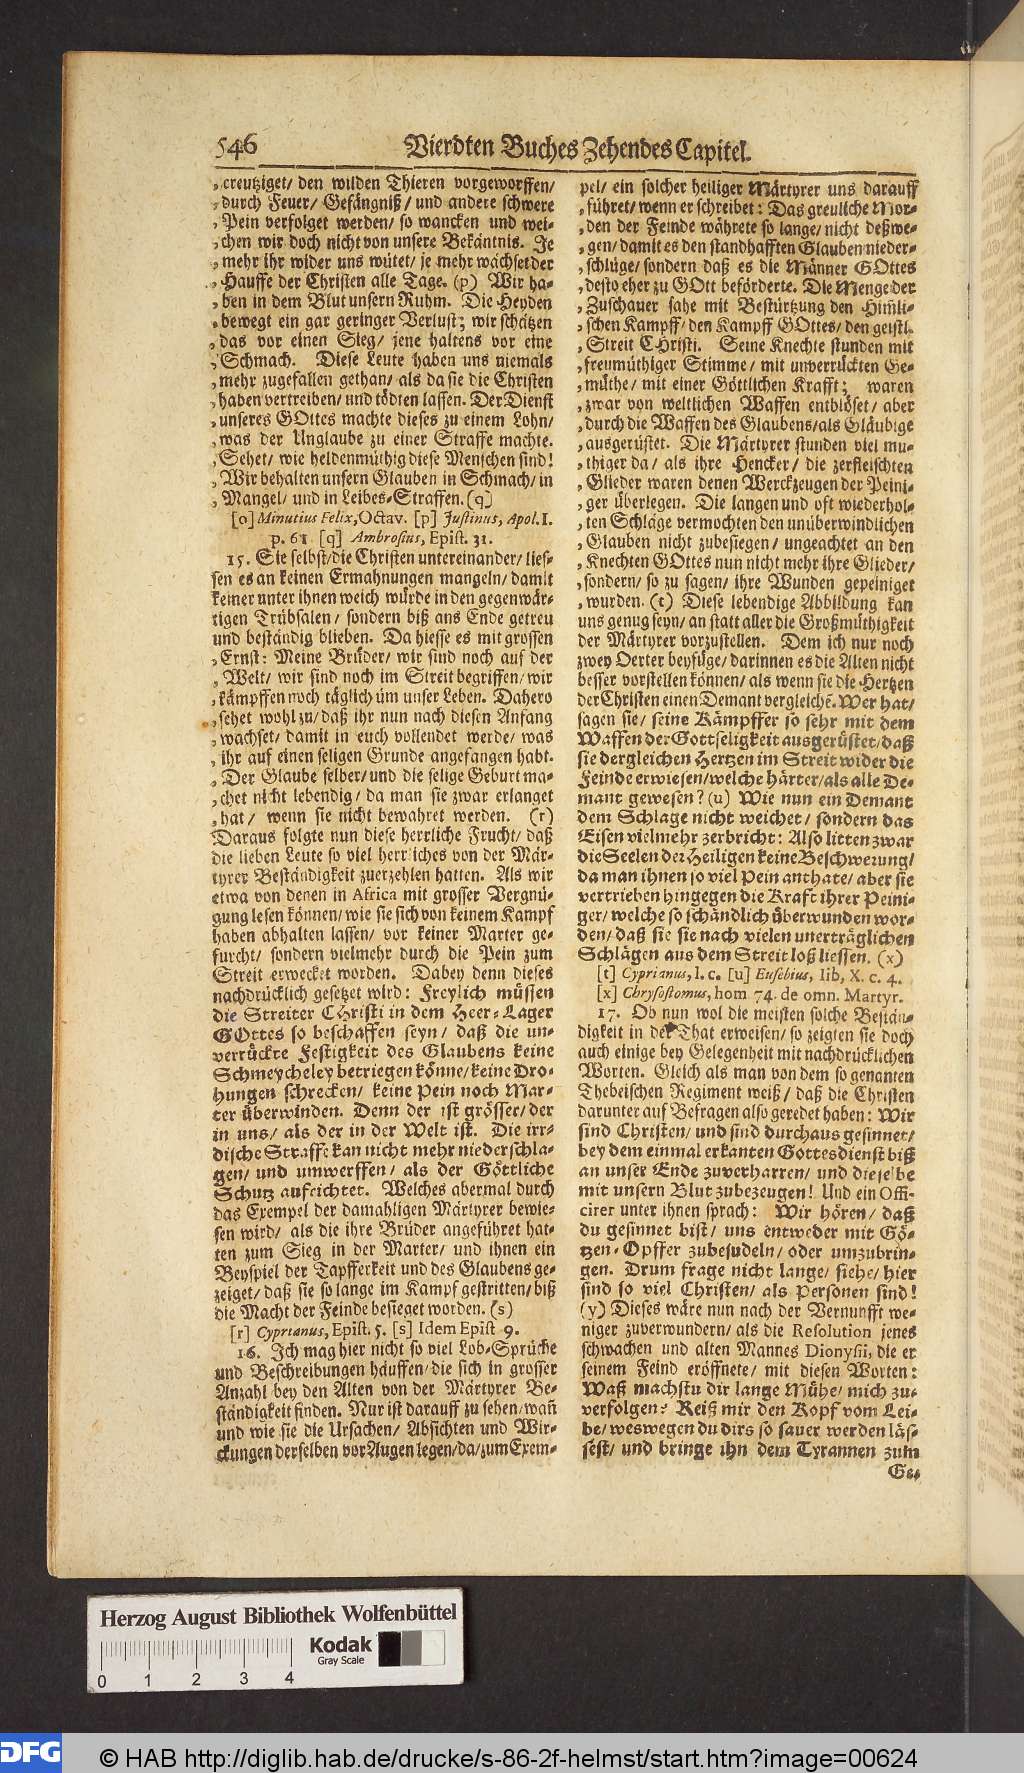 546 Vierdten Buches Zehendes Capitel.
„creutziget/ den wilden Thieren vorgeworffen/
„durch Feuer/ Gefängniß/ und andere schwere
„Pein verfolget werden/ so wancken und wei-
„chen wir doch nicht von unsere Bekäntnis. Je
„mehr ihr wider uns wütet/ je mehr wächset der
„Hauffe der Christen alle Tage. (p) Wir ha-
„ben in dem Blut unsern Ruhm. Die Heyden
„bewegt ein gar geringer Verlust; wir schätzen
„das vor einen Sieg/ jene haltens vor eine
„Schmach. Diese Leute haben uns niemals
„mehr zugefallen gethan/ als da sie die Christen
„haben vertreiben/ und tödten lassen. Der Dienst
„unseres GOttes machte dieses zu einem Lohn/
„was der Unglaube zu einer Straffe machte.
„Sehet/ wie heldenmüthig diese Menschen sind!
„Wir behalten unsern Glauben in Schmach/ in
„Mangel/ und in Leibes-Straffen. (q)
[o] Minutius Felix, Octav. [p] Justinus, Apol. I.
p. 61. [q] Ambrosius, Epist. 31.
15. Sie selbst/ die Christen untereinander/ lies-
sen es an keinen Ermahnungen mangeln/ damit
keiner unter ihnen weich würde in den gegenwär-
tigen Trübsalen/ sondern biß ans Ende getreu
und beständig blieben. Da hiesse es mit grossen
„Ernst: Meine Brüder/ wir sind noch auf der
„Welt/ wir sind noch im Streit begriffen/ wir
„kämpffen noch täglich üm unser Leben. Dahero
„sehet wohl zu/ daß ihr nun nach diesen Anfang
„wachset/ damit in euch vollendet werde/ was
„ihr auf einen seligen Grunde angefangen habt.
„Der Glaube selber/ und die selige Geburt ma-
„chet nicht lebendig/ da man sie zwar erlanget
„hat/ wenn sie nicht bewahret werden. (r)
Daraus folgte nun diese herrliche Frucht/ daß
die lieben Leute so viel herrliches von der Mär-
tyrer Beständigkeit zuerzehlen hatten. Als wir
etwa von denen in Africa mit grosser Vergnü-
gung lesen können/ wie sie sich von keinem Kampf
haben abhalten lassen/ vor keiner Marter ge-
furcht/ sondern vielmehr durch die Pein zum
Streit erwecket worden. Dabey denn dieses
nachdrücklich gesetzet wird: Freylich müssen
die Streiter Christi in dem Heer-Lager
GOttes so beschaffen seyn/ daß die un-
verrückte Festigkeit des Glaubens keine
Schmeycheley betriegen könne/ keine Dro-
hungen schrecken/ keine Pein noch Mar-
ter überwinden. Denn der ist grösser/ der
in uns/ als der in der Welt ist. Die irr-
dische Straffe kan nicht mehr niederschla-
gen/ und umwerffen/ als der Göttliche
Schutz aufrichtet. Welches abermal durch
das Exempel der damahligen Märtyrer bewie-
sen wird/ als die ihre Brüder angeführet hat-
ten zum Sieg in der Marter/ und ihnen ein
Beyspiel der Tapfferkeit und des Glaubens ge-
zeiget/ daß sie so lange im Kampf gestritten/ biß
die Macht der Feinde besieget worden. (s)
[r] Cyprianus, Epist. 5. [s] Idem Epist 9.
16. Ich mag hier nicht so viel Lob-Sprüche
und Beschreibungen häuffen/ die sich in grosser
Anzahl bey den Alten von der Märtyrer Be-
ständigkeit finden. Nur ist darauff zu sehen/ wañ
und wie sie die Ursachen/ Absichten und Wir-
ckungen derselben vor Augen legen/ da/ zum Exem-
pel/ ein solcher heiliger Märtyrer uns darauff
„führet/ wenn er schreibet: Das greuliche Mor-
„den der Feinde währete so lange/ nicht deßwe-
„gen/ damit es den standhafften Glauben nieder-
„schlüge/ sondern daß es die Männer GOttes
„desto eher zu GOtt beförderte. Die Menge der
„Zuschauer sahe mit Bestürtzung den Him̃li-
„schen Kampff/ den Kampff GOttes/ den geistl.
„Streit CHristi. Seine Knechte stunden mit
„freymüthiger Stimme/ mit unverrückten Ge-
„müthe/ mit einer Göttlichen Krafft; waren
„zwar von weltlichen Waffen entblöset/ aber
„durch die Waffen des Glaubens/ als Gläubige
„ausgerüstet. Die Märtyrer stunden viel mu-
„thiger da/ als ihre Hencker/ die zerfleischten
„Glieder waren denen Werckzeugen der Peini-
„ger überlegen. Die langen und oft wiederhol-
„ten Schläge vermochten den unüberwindlichen
„Glauben nicht zubesiegen/ ungeachtet an den
„Knechten GOttes nun nicht mehr ihre Glieder/
„sondern/ so zu sagen/ ihre Wunden gepeiniget
„wurden. (t) Diese lebendige Abbildung kan
uns genug seyn/ an statt aller die Großmüthigkeit
der Märtyrer vorzustellen. Dem ich nur noch
zwey Oerter beyfüge/ darinnen es die Alten nicht
besser vorstellen können/ als wenn sie die Hertzen
der Christen einen Demant vergleichẽ. Wer hat/
sagen sie/ seine Kämpffer so sehr mit dem
Waffen der Gottseligkeit ausgerüstet/ daß
sie dergleichen Hertzen im Streit wider die
Feinde erwiesen/ welche härter/ als alle De-
mant gewesen? (u) Wie nun ein Demant
dem Schlage nicht weichet/ sondern das
Eisen vielmehr zerbricht: Also litten zwar
die Seelen der Heiligen keine Beschwerung/
da man ihnen so viel Pein anthate/ aber sie
vertrieben hingegen die Kraft ihrer Peini-
ger/ welche so schändlich überwunden wor-
den/ daß sie sie nach vielen unerträglichen
Schlägen aus dem Streit loß liessen. (x)
[t] Cyprianus, l. c. [u] Eusebius, lib, X. c. 4.
[x] Chrysostomus, hom 74. de omn. Martyr.
17. Ob nun wol die meisten solche Bestän-
digkeit in der That erweisen/ so zeigten sie doch
auch einige bey Gelegenheit mit nachdrücklichen
Worten. Gleich als man von dem so genanten
Thebeischen Regiment weiß/ daß die Christen
darunter auf Befragen also geredet haben: Wir
sind Christen/ und sind durchaus gesinnet/
bey dem einmal erkanten Gottesdienst biß
an unser Ende zuverharren/ und dieselbe
mit unsern Blut zubezeugen! Und ein Offi-
cirer unter ihnen sprach: Wir hören/ daß
du gesinnet bist/ uns entweder mit Gö-
tzen-Opffer zubesudeln/ oder umzubrin-
gen. Drum frage nicht lange/ siehe/ hier
sind so viel Christen/ als Personen sind!
(y) Dieses wäre nun nach der Vernunfft we-
niger zuverwundern/ als die Resolution jenes
schwachen und alten Mannes Dionysii, die er
seinem Feind eröffnete/ mit diesen Worten:
Waß machstu dir lange Mühe/ mich zu-
verfolgen? Reiß mir den Kopf vom Lei-
be/ weswegen du dirs so sauer werden läs-
sest/ und bringe ihn dem Tyrannen zum
Ge-
Herzog August Bibliothek Wolfenbüttel
Kodak
Gray Scale
0 1 2 3 4
DFG © HAB http://diglib.hab.de/drucke/s-86-2f-helmst/start.htm?image=00624